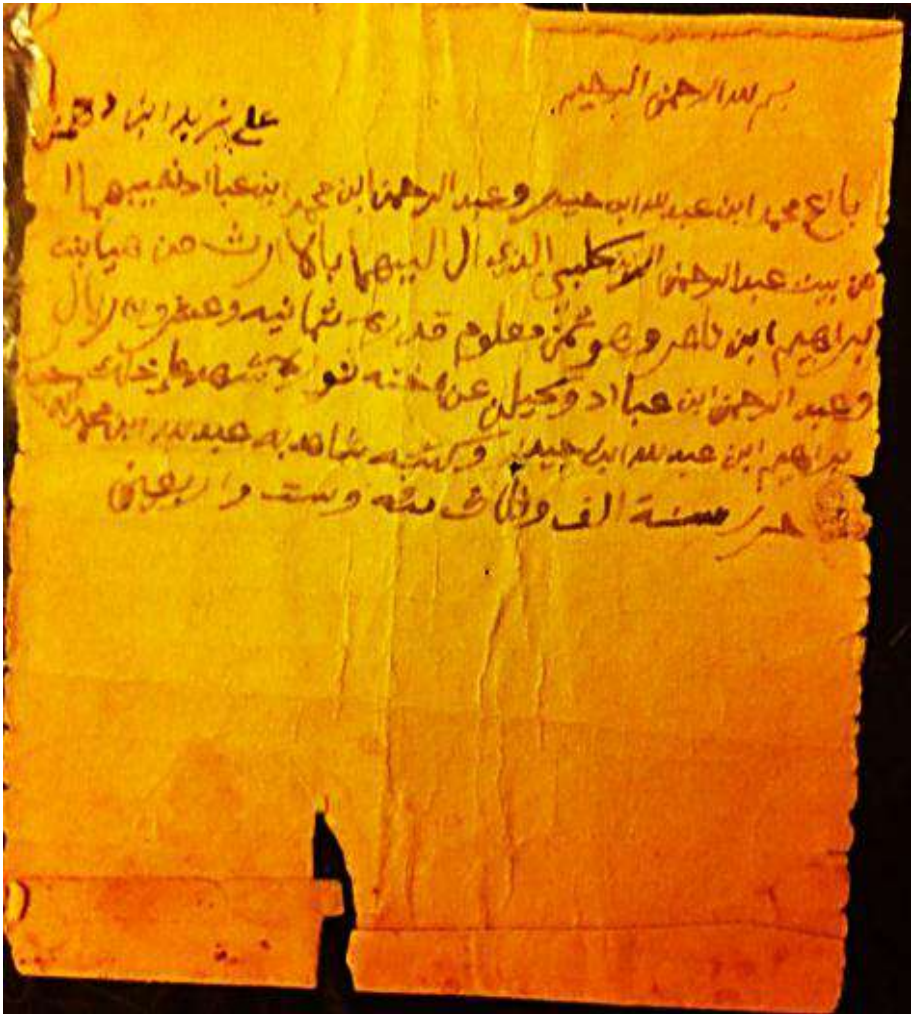 بسم لله الرحمن الرحيم
علي بن زيد ابن
باع محمد ابن عبدلله ابن وعبد الرحمن ابن محمد ابن عبااد نصيبهما
من بيت عبدالرحمن الذي ال اليهما بالارث من
براهيم ابن ناصر وهو ثمن معلوم قدره ثمانيه وعشرون ريال
وعبد الرحمن ابن عبااد وكيلن عن اخته نوره شهد على ذلك
براهيم ابن عبدلله ابن وكتبه شاهد به عبدلله ابن محمد
حرر سنة الف وثلاث مئه وست واربعين